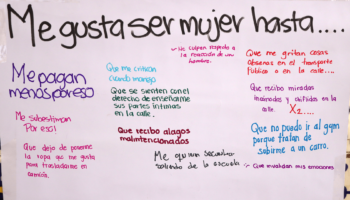 Me gusta ser mujer hasta....
Me pagan
menos por eso
Me subestiman
Por eso!
Que dejo de ponerme
la ropa que me gusta
para trasladarme en
camión.
Que me critican
cuando manejo
Que se sienten con el
derecho de enseñarme
sus partes íntimas
en la calle.
Que recibo alagos
malintencionados
Me quieren secuestrar
saliendo de la escuela
- Me culpan respecto a
la reacción de un
hombre.
Que me gritan cosas
obsenas en el transporte
Público o en la calle...
Que recibo miradas
lavadas y chifidas en la
calle.
X2....
Que no puedo ir al gym
porque tratan de
subirme a un carro.
- Que invalidan mis emociones